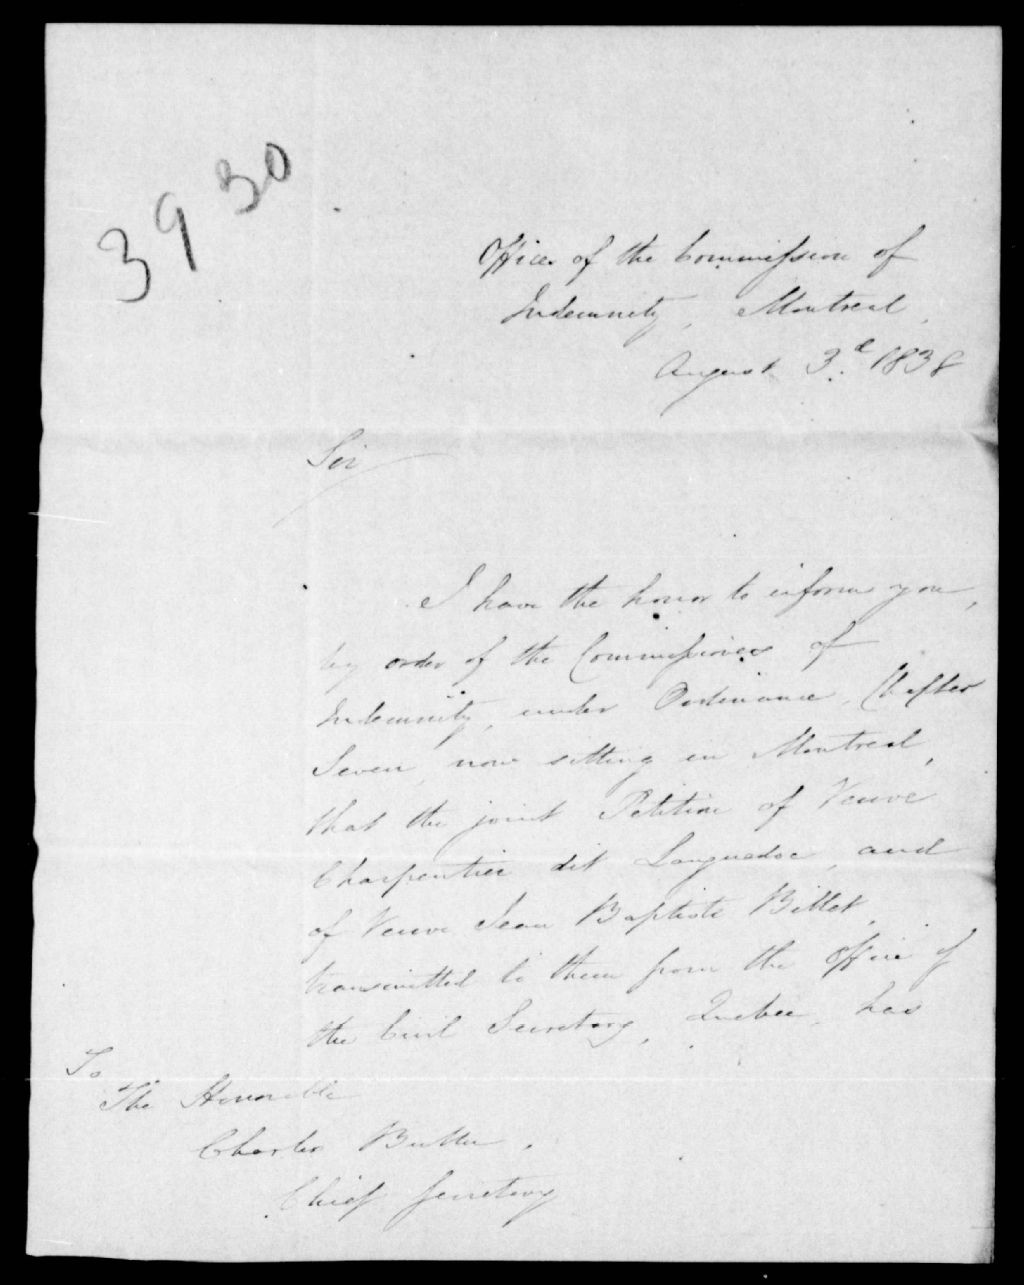 3930
Office of the Commission of
Indemnity, Montreal,
August 3.d 1838
Sir
I have the honor to inform you,
by order of the Commissioners of
Indemnity, under Ordinance, Chapter
Seven, now sitting in Montreal,
that the joint Petition of Veuve
Charpentier dit Languedoc, and
of Veuve Jean Baptiste Billet,
transmitted to them from the Office of
the Civil Secretary, Quebec, has
To
The Honorable
Charles Buller,
Chief Secretary